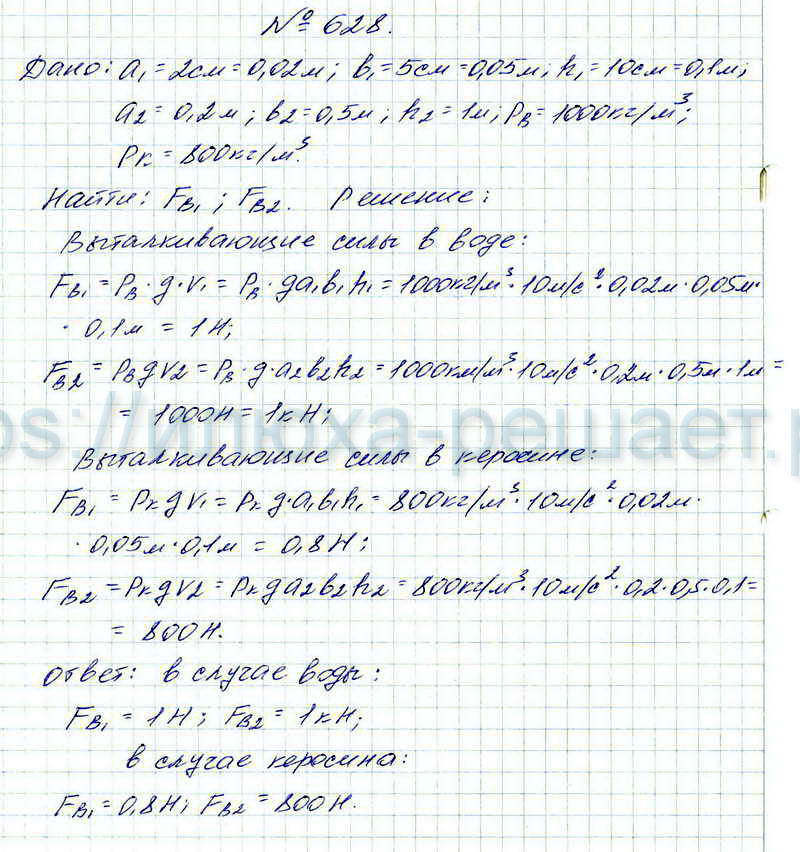 № 628.
Дано: a₁=2см=0,02м; b₁=5см=0,05м; h₁=10см=0,1м;
a₂=0,2м; b₂=0,5м; h₂=1м; ρв=1000кг/м³;
ρк=800кг/м³.
Найти: Fв₁; Fв₂. Решение:
Выталкивающие силы в воде:
Fв₁=ρв·g·v₁=ρв·ga₁b₁h₁=1000кг/м³·10м/с²·0,02м·0,05м·
·0,1м=1Н;
Fв₂=ρвgv₂=ρв·g·a₂b₂h₂=1000км/м³·10м/с²·0,2м·0,5м·1м=
=1000Н=1кН;
Выталкивающие силы в керосине:
Fв₁=ρкgv₁=ρкg·a₁b₁h₁=800кг/м³·10м/с²·0,02м·
·0,05м·0,1м=0,8Н;
Fв₂=ρкgv₂=ρкga₂b₂h₂=800кг/м³·10м/с²·0,2·0,5·0,1=
=800Н.
Ответ: в случае воды:
Fв₁=1Н; Fв₂=1кН;
в случае керосина:
Fв₁=0,8Н; Fв₂=800Н.